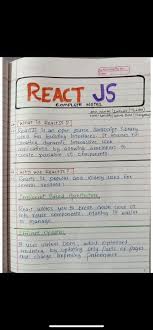 REACT JS
COMPLETE NOTES
What is ReactJS ?
ReactJS is an open source JavaScript library
used for building interfaces. It focuses on
creating dynamic, interactive user
interfaces by allowing developers to
create reusable UI components.
Why use ReactJS ?
ReactJS is popular and widely used for
several reasons :
Component Based Architecture
React allows you to break down your UI
into
components, making it easier
to manage
Efficient Updates
It uses virtual DOM, which optimized
rendering by updating only parts of pages
that change improving performance